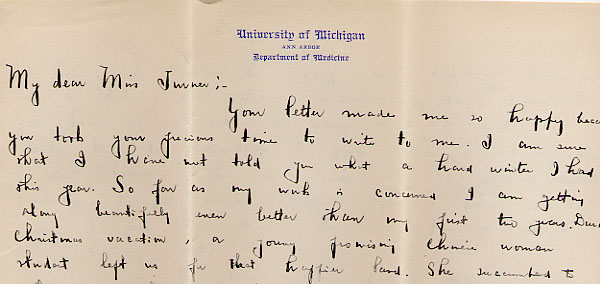 University of Michigan
ANN ARBOR
Department of Medicine
My dear Miss Turner:-
Your letter made me so happy beca
you took your precious time to write to me. I am sure
that I have not told you what a hard winter I had
this year. So far as my work is concerned I am getting
along beautifully even better than my first two years. Duri
Christmas vacation, a young promising Chinese woman
student left us for that happier land. She succumbed to